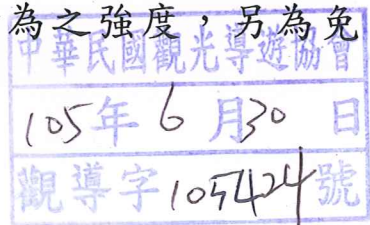 為之強度，另為免
中華民國觀光導遊協會
105年6月30日
觀導字105424號